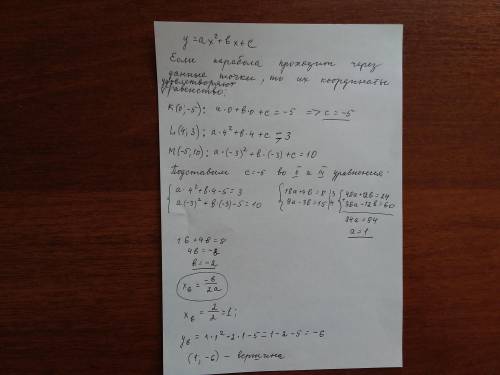 y = ax² + вx + c
Если парабола проходит через
данные точки, то их координаты
удовлетворяют
уравнению:
K(0;-5): a·0 + в·0 + c = -5 => c = -5
L(4;3): a·4² + в·4 + c = 3
M(-5;10): a·(-3)² + в·(-3) + c = 10
Подставим c = -5 во II и III уравнения:
{ a·4² + в·4 - 5 = 3 { 16a + 4в = 8 |3 { 48a + 12в = 24
a(-3)² + в·(-3) - 5 = 10 9a - 3в = 15 |4 36a - 12в = 60
84a = 84
a = 1
16 + 4в = 8
4в = -8
в = -2
xв = -в/2a
xв = 2/2 = 1;
yв = 1·1² - 2·1 - 5 = 1 - 2 - 5 = -6
(1; -6) - вершина